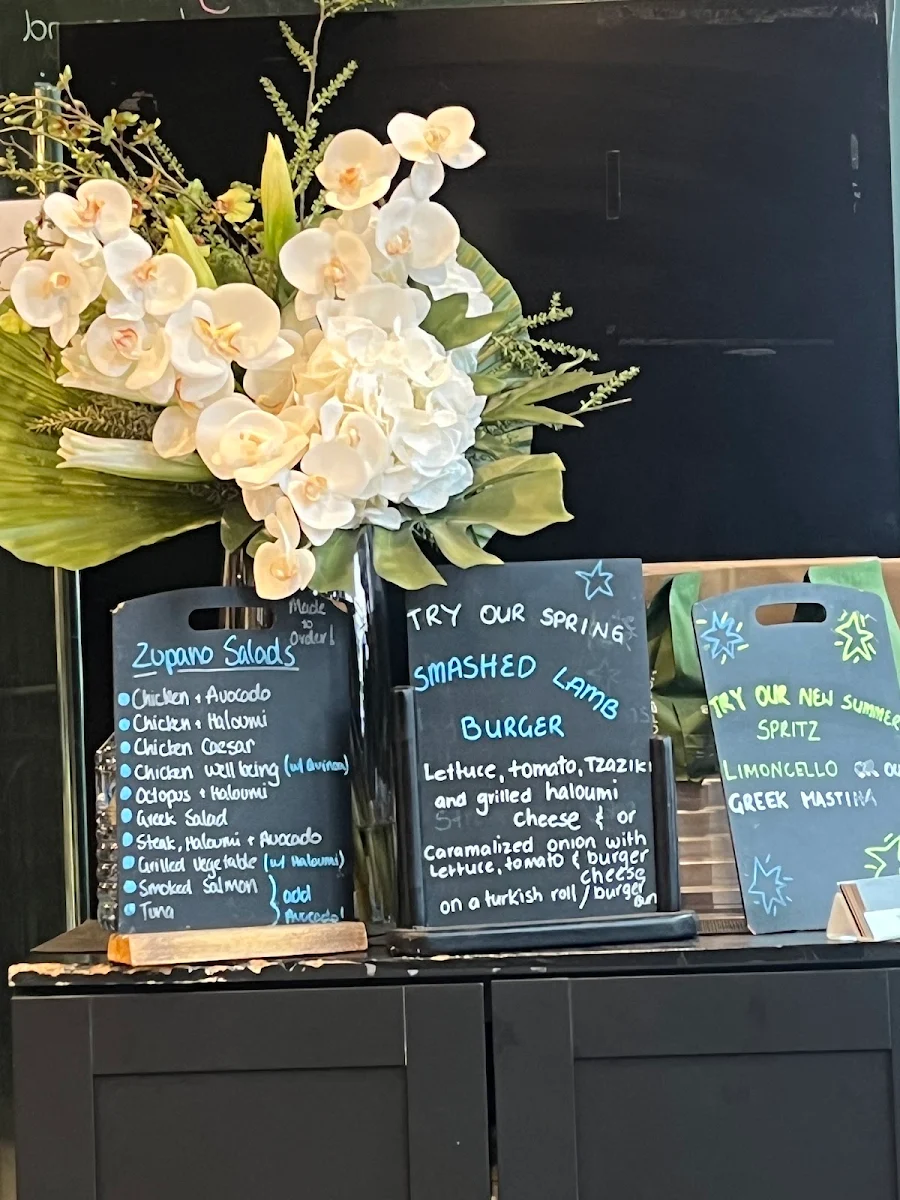 Made
to
Order!
Zupano Salads
Chicken + Avocado
Chicken + Haloumi
Chicken Caesar
Chicken well being (w/ Quinoa)
Octopus + Haloumi
Greek Salad
Steak, Haloumi + Avocado
Grilled Vegetable (w/ Haloumi)
Smoked Salmon
Tuna
add
Avocado!
TRY OUR SPRING
SMASHED LAMB
BURGER
Lettuce, tomato, Tzaziki
and grilled haloumi
cheese & or
Caramalized onion with
Lettuce, tomato & burger
cheese
on a turkish roll / burger
Bun
TRY OUR NEW SUMMER
SPRITZ
LIMONCELLO OR OU
GREEK MASTINA